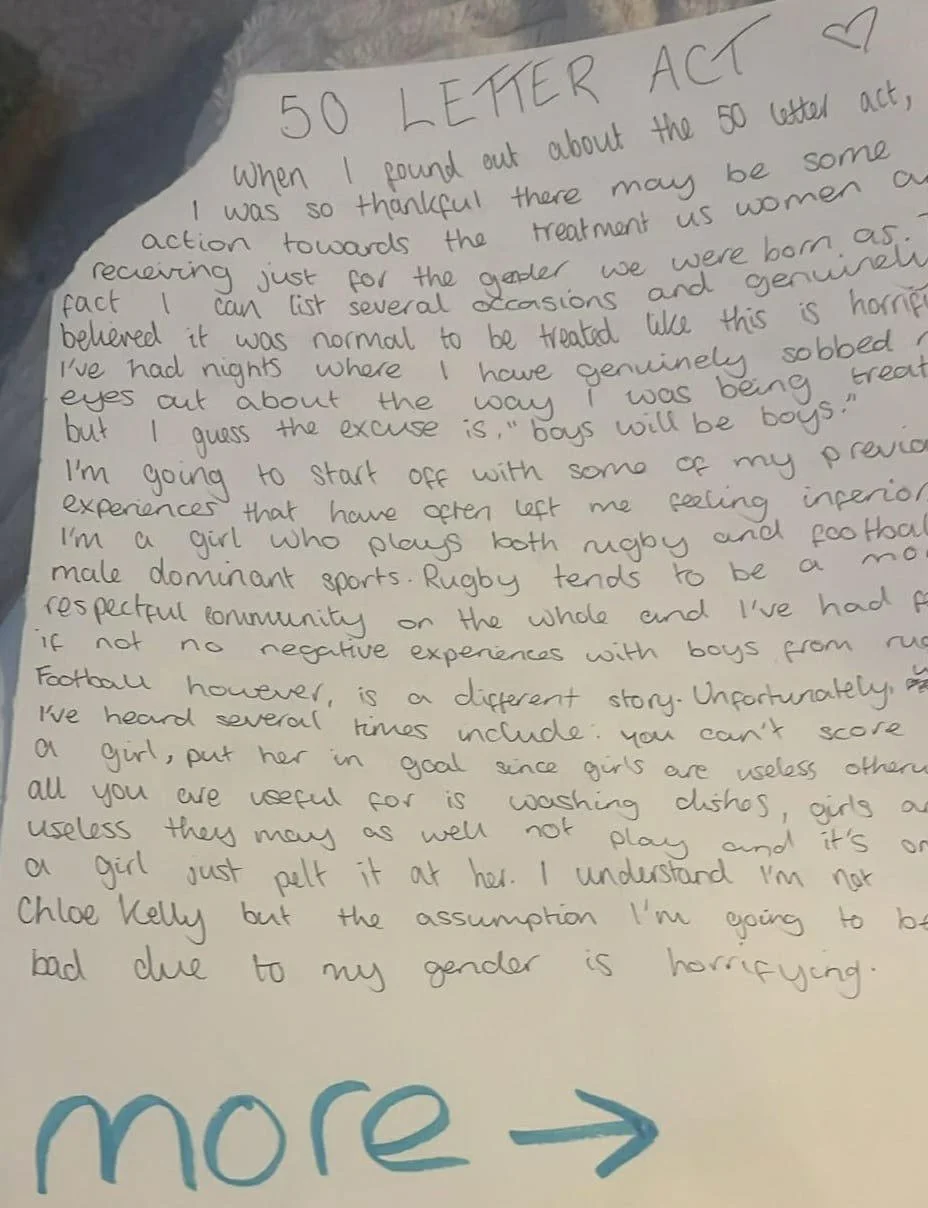 50 LETTER ACT ♡
When I found out about the 50 letter act,
I was so thankful there may be some
action towards the treatment us women
recieving just for the gender we were born as.
fact I can list several occasions and genuinel
believed it was normal to be treated like this is horrif
I've had nights where I have genuinely sobbed
eyes out about the way I was being treat
but I guess the excuse is, "boys will be boys."
I'm going to start off with some of my previo
experiences that have often left me feeling inferior
I'm a girl who plays both rugby and footbal
male dominant sports. Rugby tends to be a mo
respectful community on the whole and I've had f
if not no negative experiences with boys from ru
Football however, is a different story. Unfortunately,
I've heard several times include: you can't score
a girl, put her in goal since girls are useless otherw
all you are useful for is washing dishes, girls a
useless they may as well not play and it's on
a girl just pelt it at her. I understand I'm not
Chloe Kelly but the assumption I'm going to be
bad due to my gender is horrifying.
more →